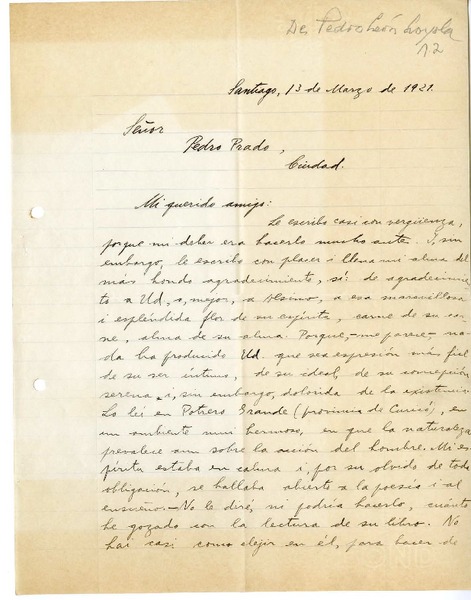 De Pedro León Loyola
12
Santiago, 13 de Marzo de 1921.
Señor
Pedro Prado,
Ciudad.
Mi querido amigo:
Le escribo casi con vergüenza,
porque mi deber era hacerlo mucho antes. I, sin
embargo, le escribo con placer i llena mi alma del
mas hondo agradecimiento, sí: de agradecimien-
to a Ud, o, mejor, a Alsino, a esa maravillosa
i espléndida flor de su espíritu, carne de su car-
ne, alma de su alma. Porque, -me parece,- na-
da ha producido Ud. que sea espresión más fiel
de su ser íntimo, de su ideal, de su concepción
serena i, sin embargo, dolorida de la existencia.
Lo leí en Potrero Grande (provincia de Curicó), en
un ambiente mui hermoso, en que la naturaleza
prevalece aun sobre la acción del hombre. Mi es-
píritu estaba en calma i, por su olvido de toda
obligación, se hallaba abierto a la poesía i al
ensueño.- No le diré, ni podría hacerlo, cuánto
he gozado con la lectura de su libro. No
hai casi como elejir en él, para hacer de